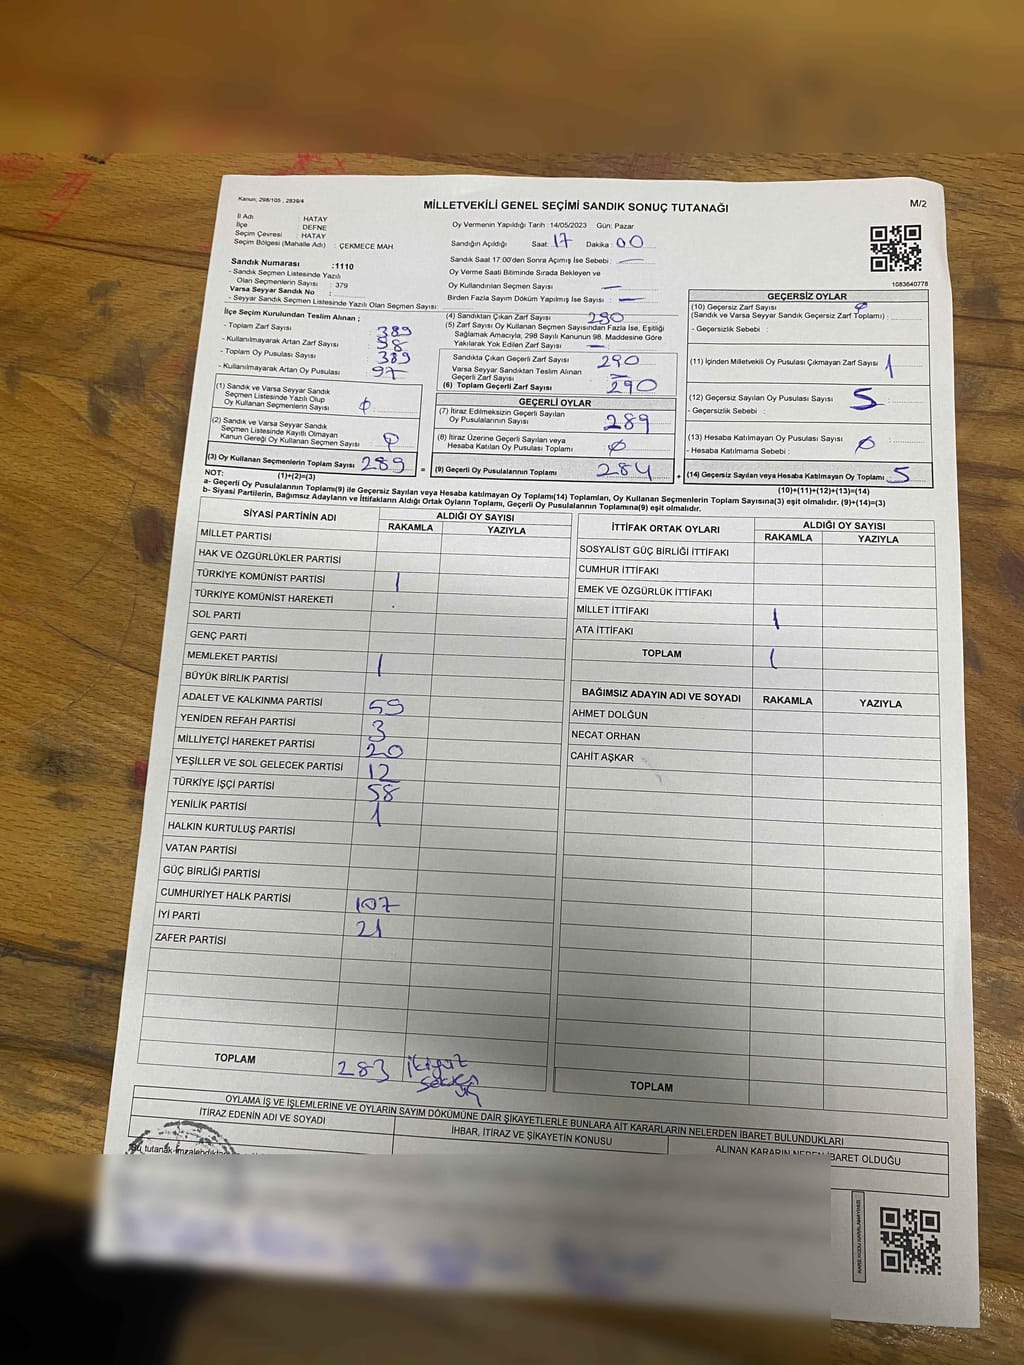 Kanun, 298/105 , 2839/4
MİLLETVEKİLİ GENEL SEÇİMİ SANDIK SONUÇ TUTANAĞI
M/2
İl Adı : HATAY
İlçe : DEFNE
Seçim Çevresi : HATAY
Seçim Bölgesi (Mahalle Adı) : ÇEKMECE MAH
Sandık Numarası :1110
- Sandık Seçmen Listesinde Yazılı
Olan Seçmenlerin Sayısı : 379
Varsa Seyyar Sandık No :
- Seyyar Sandık Seçmen Listesinde Yazılı Olan Seçmen Sayısı:
Oy Vermenin Yapıldığı Tarih : 14/05/2023 Gün: Pazar
Sandığın Açıldığı Saat: 17 Dakika : 00
Sandık Saat 17:00'den Sonra Açımış İse Sebebi : —
Oy Verme Saati Bitiminde Sırada Bekleyen ve
Oy Kullandırılan Seçmen Sayısı —
Birden Fazla Sayım Döküm Yapılmış İse Sayısı : —
1083640778
İlçe Seçim Kurulundan Teslim Alınan ;
- Toplam Zarf Sayısı : 389
- Kullanılmayarak Artan Zarf Sayısı : 98
- Toplam Oy Pusulası Sayısı : 389
- Kullanılmayarak Artan Oy Pusulası : 97
(1) Sandık ve Varsa Seyyar Sandık
Seçmen Listesinde Yazılı Olup
Oy Kullanan Seçmenlerin Sayısı : 0
(2) Sandık ve Varsa Seyyar Sandık
Seçmen Listesinde Kayıtlı Olmayan
Kanun Gereği Oy Kullanan Seçmen Sayısı : 0
(3) Oy Kullanan Seçmenlerin Toplam Sayısı 289
(1)+(2)=(3)
(4) Sandıktan Çıkan Zarf Sayısı : 290
(5) Zarf Sayısı Oy Kullanan Seçmen Sayısından Fazla İse, Eşitliği
Sağlamak Amacıyla, 298 Sayılı Kanunun 98. Maddesine Göre
Yakılarak Yok Edilen Zarf Sayısı : —
Sandıkta Çıkan Geçerli Zarf Sayısı 290
Varsa Seyyar Sandıktan Teslim Alınan
Geçerli Zarf Sayısı —
(6) Toplam Geçerli Zarf Sayısı 290
GEÇERLİ OYLAR
(7) İtiraz Edilmeksizin Geçerli Sayılan
Oy Pusulalarının Sayısı : 289
(8) İtiraz Üzerine Geçerli Sayılan veya
Hesaba Katılan Oy Pusulası Toplamı : 0
= (9) Geçerli Oy Pusulalarının Toplamı 284
GEÇERSİZ OYLAR
(10) Geçersiz Zarf Sayısı 0
(Sandık ve Varsa Seyyar Sandık Geçersiz Zarf Toplamı) :
- Geçersizlik Sebebi :
(11) İçinden Milletvekili Oy Pusulası Çıkmayan Zarf Sayısı 1
(12) Geçersiz Sayılan Oy Pusulası Sayısı 5
- Geçersizlik Sebebi :
(13) Hesaba Katılmayan Oy Pusulası Sayısı 0
- Hesaba Katılmama Sebebi :
+ (14) Geçersiz Sayılan veya Hesaba Katılmayan Oy Toplamı 5
(10)+(11)+(12)+(13)=(14)
NOT:
a- Geçerli Oy Pusulalarının Toplamı(9) ile Geçersiz Sayılan veya Hesaba katılmayan Oy Toplamı(14) Toplamları, Oy Kullanan Seçmenlerin Toplam Sayısına(3) eşit olmalıdır. (9)+(14)=(3)
b- Siyasi Partilerin, Bağımsız Adayların ve İttifakların Aldığı Ortak Oyların Toplamı, Geçerli Oy Pusulalarının Toplamına(9) eşit olmalıdır.
SİYASİ PARTİNİN ADI ALDIĞI OY SAYISI
RAKAMLA YAZIYLA
MİLLET PARTİSİ
HAK VE ÖZGÜRLÜKLER PARTİSİ
TÜRKİYE KOMÜNİST PARTİSİ 1
TÜRKİYE KOMÜNİST HAREKETİ
SOL PARTİ
GENÇ PARTİ
MEMLEKET PARTİSİ 1
BÜYÜK BİRLİK PARTİSİ
ADALET VE KALKINMA PARTİSİ 59
YENİDEN REFAH PARTİSİ 3
MİLLİYETÇİ HAREKET PARTİSİ 20
YEŞİLLER VE SOL GELECEK PARTİSİ 12
TÜRKİYE İŞÇİ PARTİSİ 58
YENİLİK PARTİSİ 1
HALKIN KURTULUŞ PARTİSİ
VATAN PARTİSİ
GÜÇ BİRLİĞİ PARTİSİ
CUMHURİYET HALK PARTİSİ 107
İYİ PARTİ 21
ZAFER PARTİSİ
TOPLAM 283 ikiyüz
seksen
üç
İTTİFAK ORTAK OYLARI ALDIĞI OY SAYISI
RAKAMLA YAZIYLA
SOSYALİST GÜÇ BİRLİĞİ İTTİFAKI
CUMHUR İTTİFAKI
EMEK VE ÖZGÜRLÜK İTTİFAKI
MİLLET İTTİFAKI 1
ATA İTTİFAKI
TOPLAM 1
BAĞIMSIZ ADAYIN ADI VE SOYADI RAKAMLA YAZIYLA
AHMET DOLĞUN
NECAT ORHAN
CAHİT AŞKAR
TOPLAM
OYLAMA İŞ VE İŞLEMLERİNE VE OYLARIN SAYIM DÖKÜMÜNE DAİR ŞİKAYETLERLE BUNLARA AİT KARARLARIN NELERDEN İBARET BULUNDUKLARI
İTİRAZ EDENİN ADI VE SOYADI
İHBAR, İTİRAZ VE ŞİKAYETİN KONUSU
ALINAN KARARIN NEDEN İBARET OLDUĞU